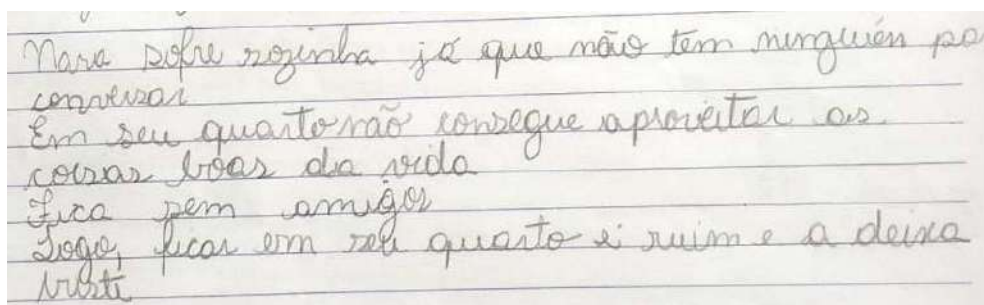 Nara sofre sozinha já que não tem ninguién pa
conversar
Em seu quarto não consegue aproveitar as
coisas boas da vida
Fica sem amigos
Logo, ficar em seu quarto é ruim e a deixa
triste